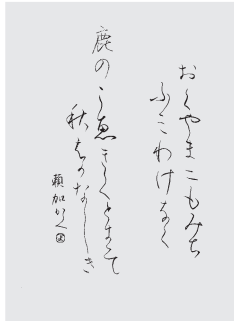 おくやまにもみち
ふみわけなく
鹿のこ恵きくときそ
秋はかなしき